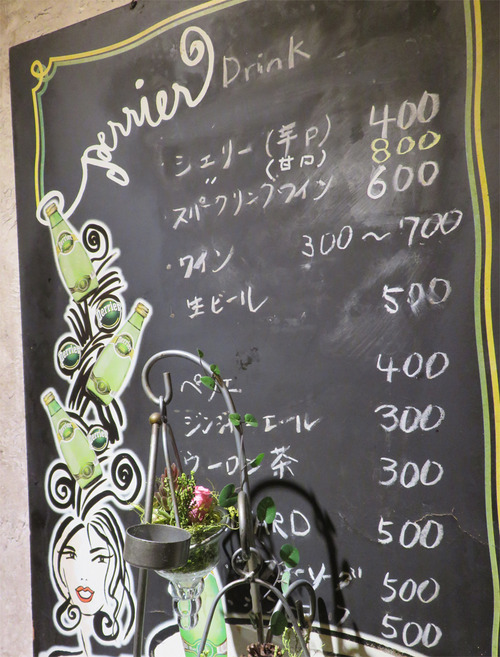 perrier Drink
シェリー (辛口) 400
〃 (甘口) 800
スパークリングワイン 600
ワイン 300～700
生ビール 500
400
ジンジャーエール 300
ウーロン茶 300
500
500
500
Perrier
Perrier